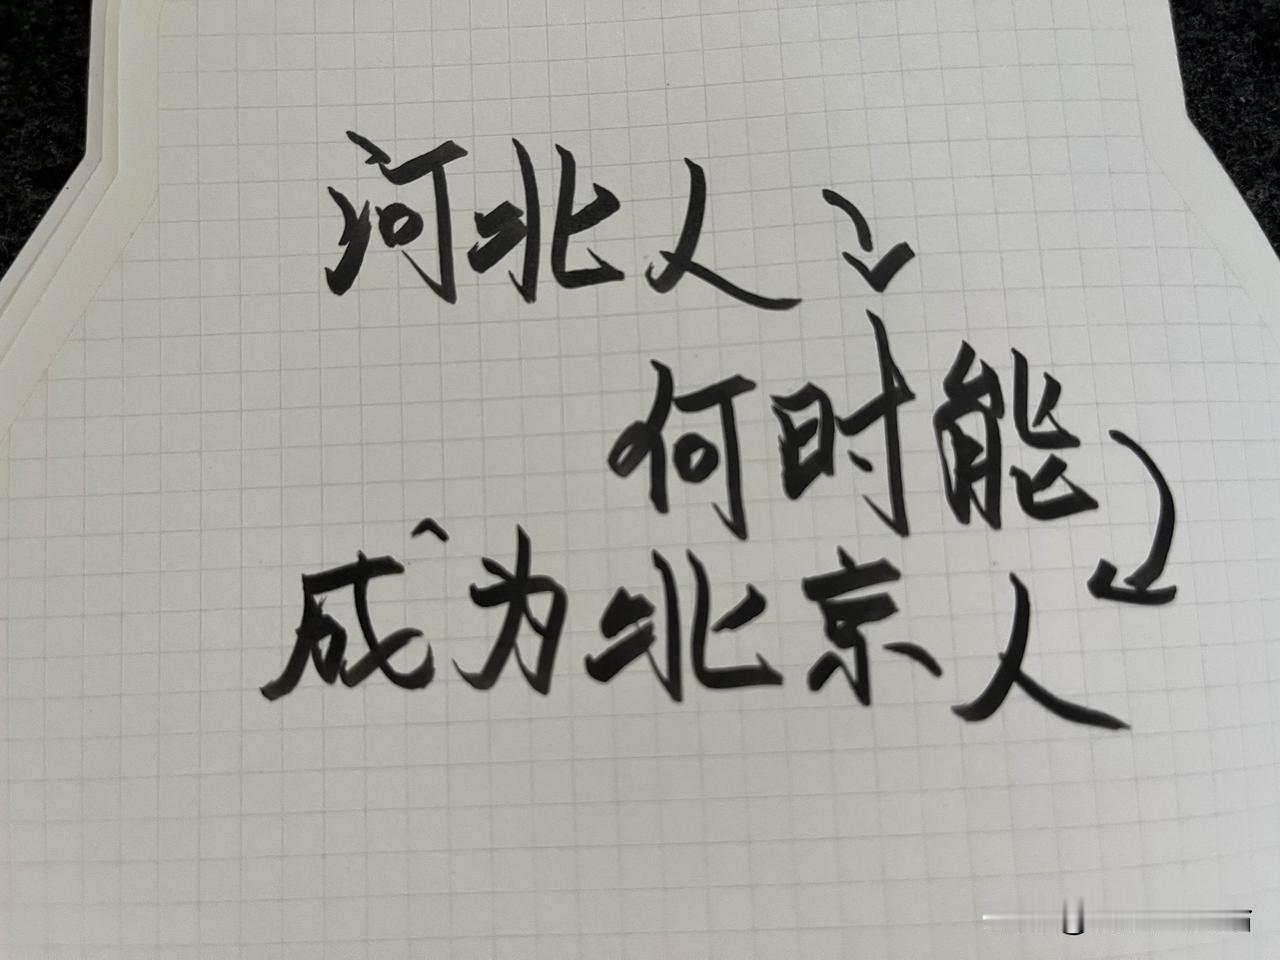 河北人
何时能
成为北京人